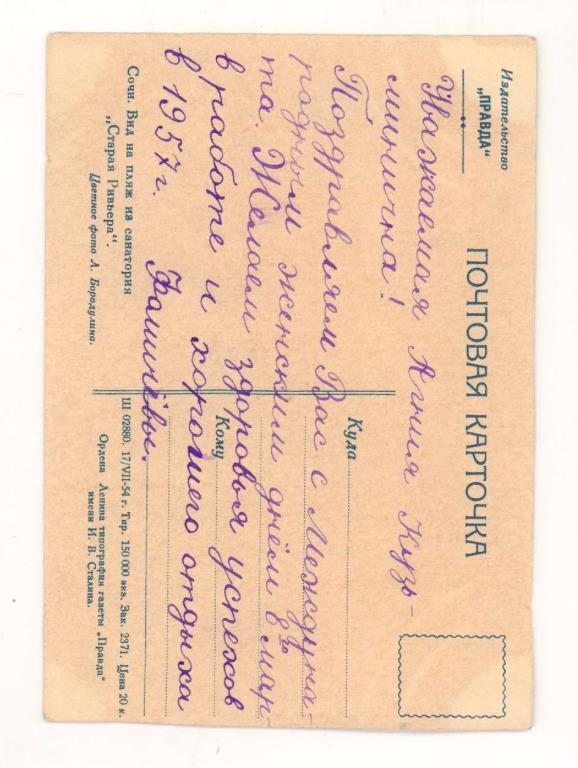 Издательство
„ПРАВДА“
ПОЧТОВАЯ КАРТОЧКА
Уважаемая Агния Кузь-
минична!
Поздравляем Вас с Междуна-
родным женским днём 8го мар-
та. Желаем здоровья успехов
в работе и хорошего отдыха
в 1957г.
Куда
Кому
Сочи. Вид на пляж из санатория
„Старая Ривьера“.
Цветное фото Л. Бородулина.
Ш 02880. 17/VII-54 г. Тир. 150 000 экз. Зак. 2371. Цена 20 к.
Ордена Ленина типография газеты „Правда“
имени И. В. Сталина.